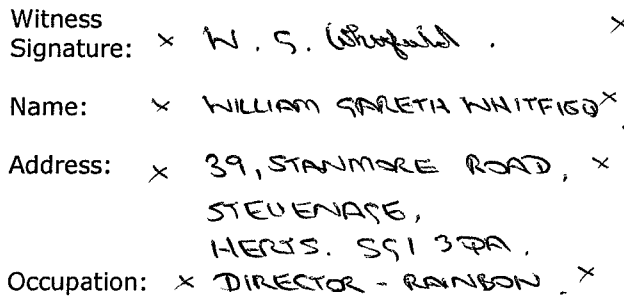 Witness
Signature: × W. G. Whitfield. ×
Name: × WILLIAM GARETH WHITFIELD ×
Address: × 39, STANMORE ROAD, ×
STEVENAGE,
HERTS. SG1 3QA.
Occupation: × DIRECTOR - RAINBOW. ×